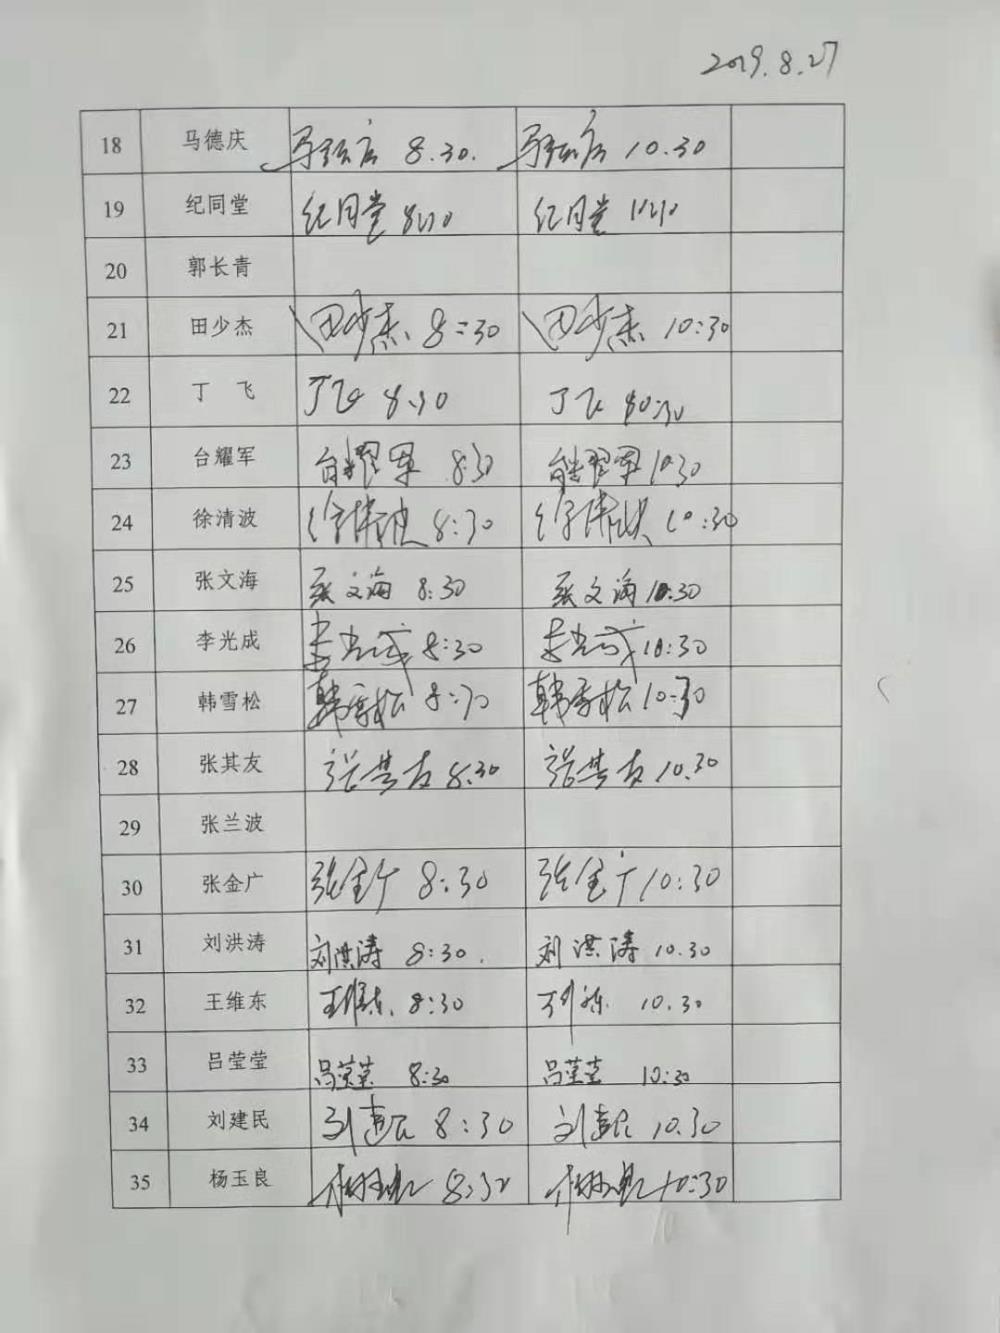 2019.8.27
18 马德庆 马德庆 8.30. 马德庆 10.30
19 纪同堂 纪同堂 8:30 纪同堂 10:30
20 郭长青
21 田少杰 田少杰 8:30 田少杰 10:30
22 丁 飞 丁飞 8:30 丁飞 10:30
23 台耀军 台耀军 8:30 台耀军 10:30
24 徐清波 8:30 10:30
25 张文海 张文海 8:30 张文海 10:30
26 李光成 李光成 8:30 李光成 10:30
27 韩雪松 韩雪松 8:30 韩雪松 10:30
28 张其友 张其友 8:30 张其友 10.30
29 张兰波
30 张金广 张金广 8:30 张金广 10:30
31 刘洪涛 刘洪涛 8:30. 刘洪涛 10.30
32 王维东 王维东. 8:30 10.30
33 吕莹莹 吕莹莹 8:30 吕莹莹 10:30
34 刘建民 刘建民 8:30 刘建民 10.30
35 杨玉良 杨玉良 8:30 杨玉良 10:30